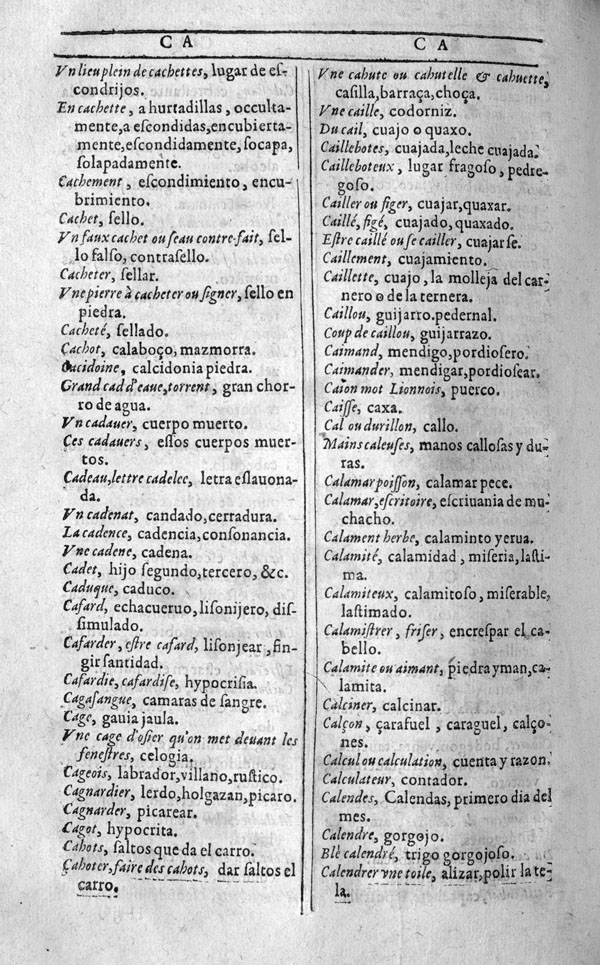 CA
Vn lieu plein de cachettes, lugar de eſ-
condrijos.
En cachette, a hurtadillas, occulta-
mente, a eſcondidas, encubierta-
mente, eſcondidamente, ſocapa,
ſolapadamente.
Cachement, eſcondimiento, encu-
brimiento.
Cachet, ſello.
Vn faux cachet ou ſeau contre-fait, ſel-
lo falſo, contraſello.
Cacheter, ſellar.
Vne pierre à cacheter ou ſigner, ſello en
piedra.
Cacheté, ſellado.
Cachot, calaboço, mazmorra.
calcidonia piedra.
Grand cad d'eaue, torrent, gran chor-
ro de agua.
Vn cadauer, cuerpo muerto.
Ces cadauers, eſtos cuerpos muer-
tos.
Cadeau, lettre cadelec, letra eſlauona-
da.
Vn cadenat, candado, cerradura.
La cadence, cadencia, conſonancia.
Vne cadene, cadena.
Cadet, hijo ſegundo, tercero, &c.
Caduque, caduco.
Cafard, echacueruo, liſonijero, diſ-
ſimulado.
Cafarder, eſtre cafard, liſonjear, fin-
gir ſantidad.
Cafardie, cafardiſe, hypocriſia.
Cagaſangue, camaras de ſangre.
Cage, gauia jaula.
Vne cage d'oſier qu'on met deuant les
feneſtres, celogia.
Cageois, labrador, villano, ruſtico.
Cagnardier, lerdo, holgazan, picaro.
Cagnarder, picarear.
Cagot, hypocrita.
Cahots, ſaltos que da el carro.
Cahoter, faire des cahots, dar ſaltos el
carro.
CA
Vne cahute ou cahutelle & cahuette,
caſilla, barraça, choça.
Vne caille, codorniz.
Du cail, cuajo o quaxo.
Caillebotes, cuajada, leche cuajada.
Cailleboteux, lugar fragoſo, pedre-
goſo.
Cailler ou figer, cuajar, quaxar.
Caillé, figé, cuajado, quaxado.
Eſtre caillé ou ſe cailler, cuajarſe.
Caillement, cuajamiento.
Caillette, cuajo, la molleja del car-
nero o de la ternera.
Caillou, guijarro. pedernal.
Coup de caillou, guijarrazo.
Caimand, mendigo, pordioſero.
Caimander, mendigar, pordioſear.
Caion mot Lionnois, puerco.
Caiſſe, caxa.
Cal ou durillon, callo.
Mains caleuſes, manos calloſas y du-
ras.
Calamar poiſſon, calamar pece.
Calamar, eſcritoire, eſcriuania de mu-
chacho.
Calament herbe, calaminto yerua.
Calamité, calamidad, miſeria, laſti-
ma.
Calamiteux, calamitoſo, miſerable,
laſtimado.
Calamiſtrer, friſer, encreſpar el ca-
bello.
Calamite ou aimant, piedra yman, ca-
lamita.
Calciner, calcinar.
Calçon, çarafuel, caraguel, calço-
nes.
Calcul ou calculation, cuenta y razon.
Calculateur, contador.
Calendes, Calendas, primero dia del
mes.
Calendre, gorgojo.
Blé calendré, trigo gorgojoſo.
Calendrer vne toile, alizar, polir la te-
la.